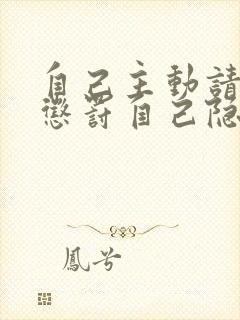 自己主動請
懲罰自己隐
鳳兮